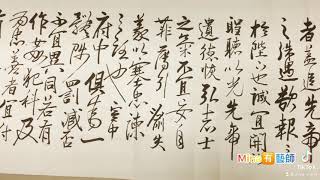 者蓋追先帝
之殊遇欲報之
於陛下也誠宜開
聖聽以光先帝
遺德恢弘志士
之氣不宜妄自
菲薄引喻失
義以塞忠諫
之路也宮中
府中俱為一
體陟罰臧否
不宜異同若有
作姦犯科及
為忠善者宜付
Miao有藝師
TikTok